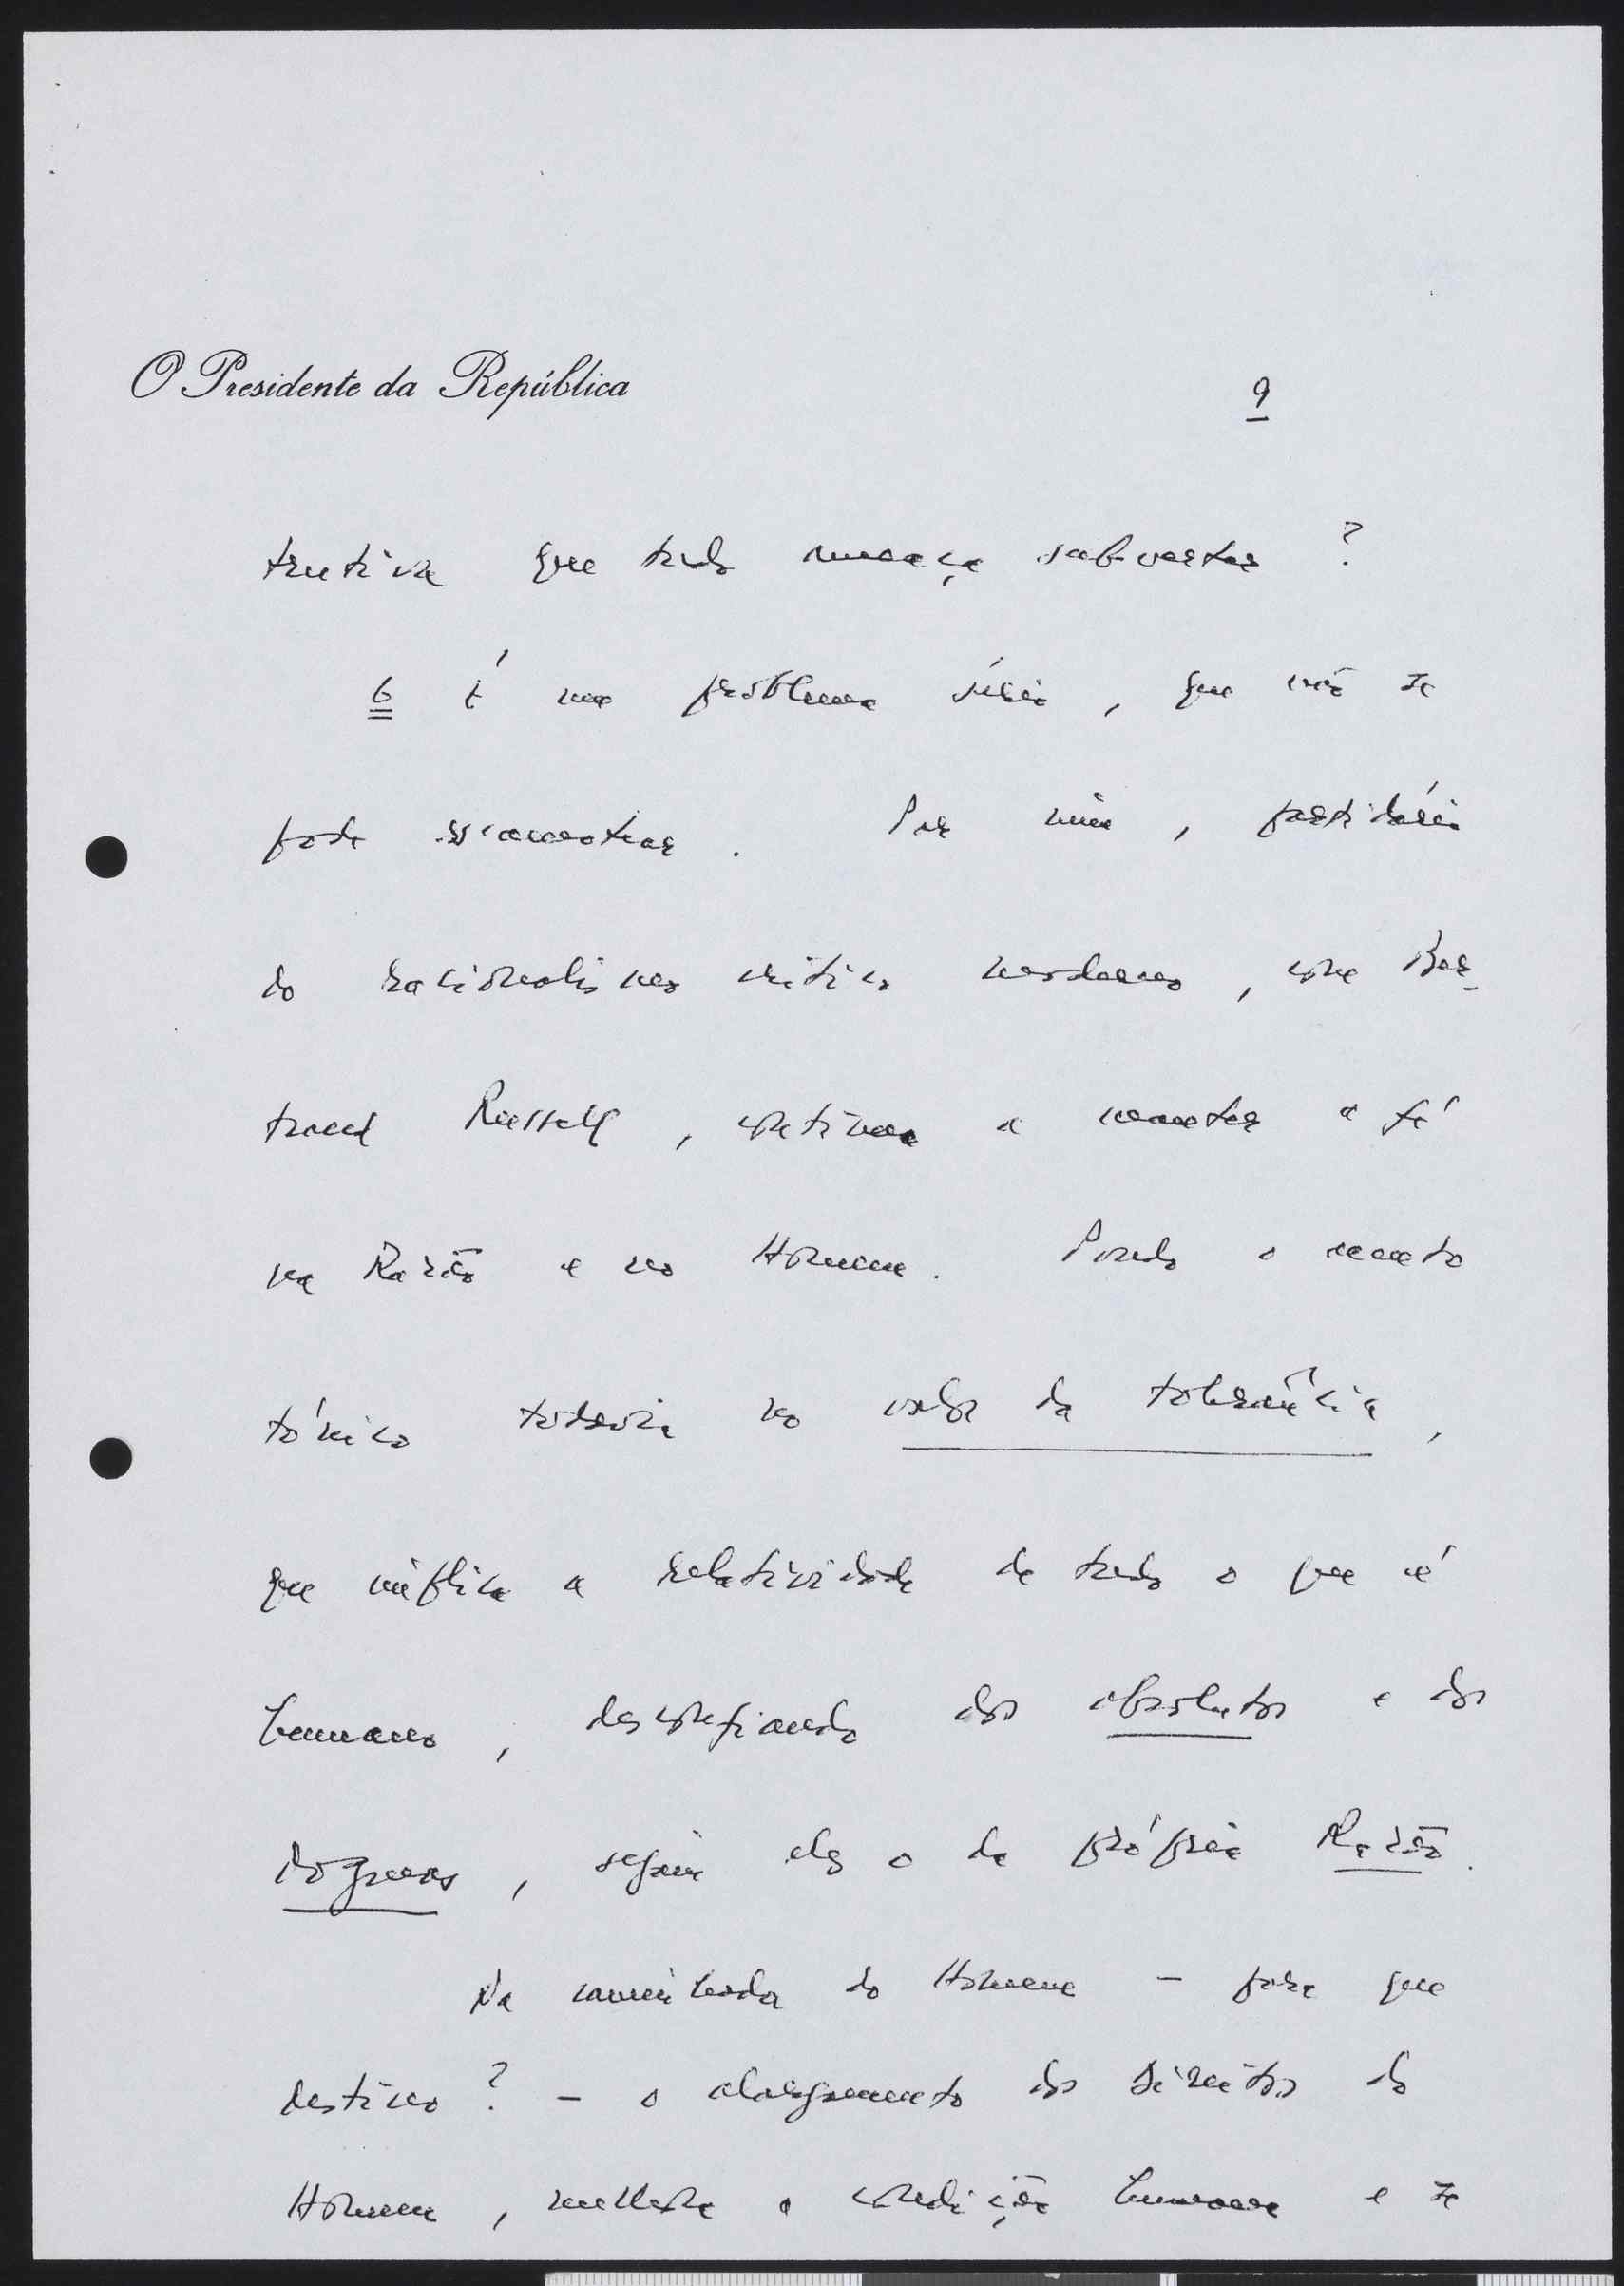 O Presidente da República
9
trutiva que tudo ameaça subverter ?
6 É um problema sério, que não se
pode escamotear. Por mim, partidário
do racionalismo crítico moderno, com Ber-
trand Russell, continuo a manter a fé
na Razão e no Homem. Pondo o acento
tónico todavia no valor da tolerância,
que implica a relatividade de tudo o que é
humano, desconfiando dos absolutos e dos
dogmas, sejam eles o da própria Razão.
Na caminhada do Homem - para que
destino ? - o alargamento dos Direitos do
Homem, melhora a condição humana e se